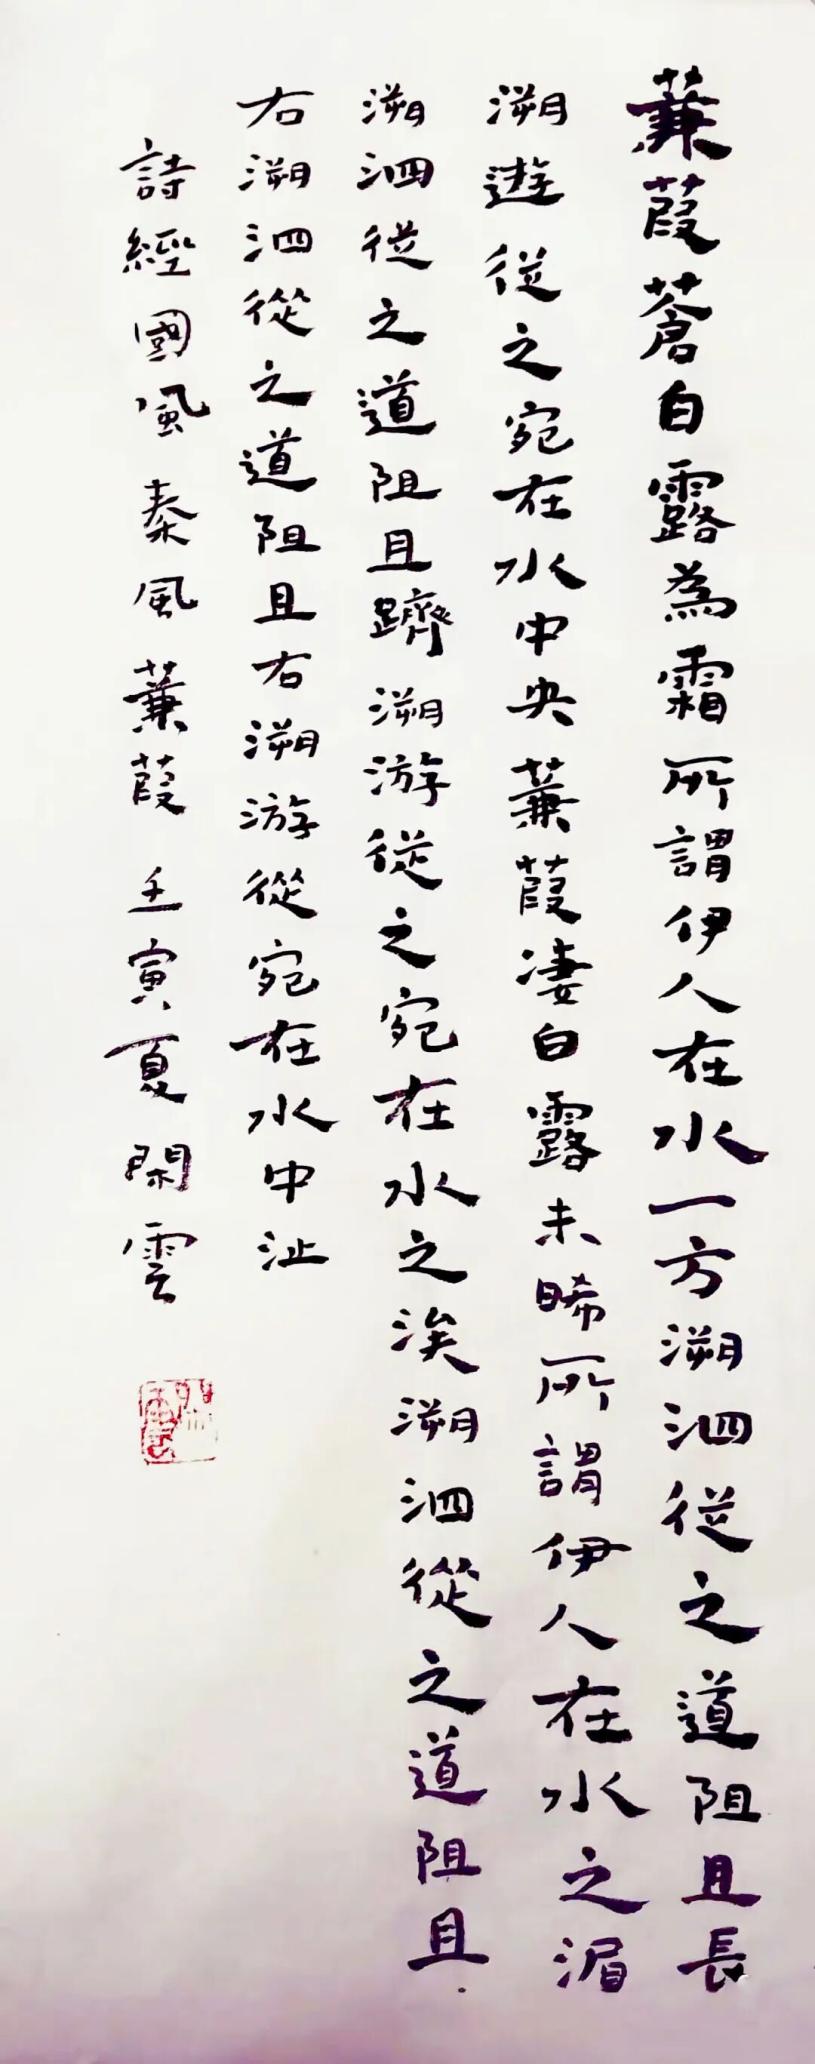 蒹葭蒼白露為霜所謂伊人在水一方溯泗從之道阻且長
溯遊從之宛在水中央蒹葭淒白露未晞所謂伊人在水之湄
溯泗從之道阻且躋溯游從之宛在水之涘溯泗從之道阻且
右溯泗從之道阻且右溯游從宛在水中沚
詩經國風秦風蒹葭壬寅夏閑雲